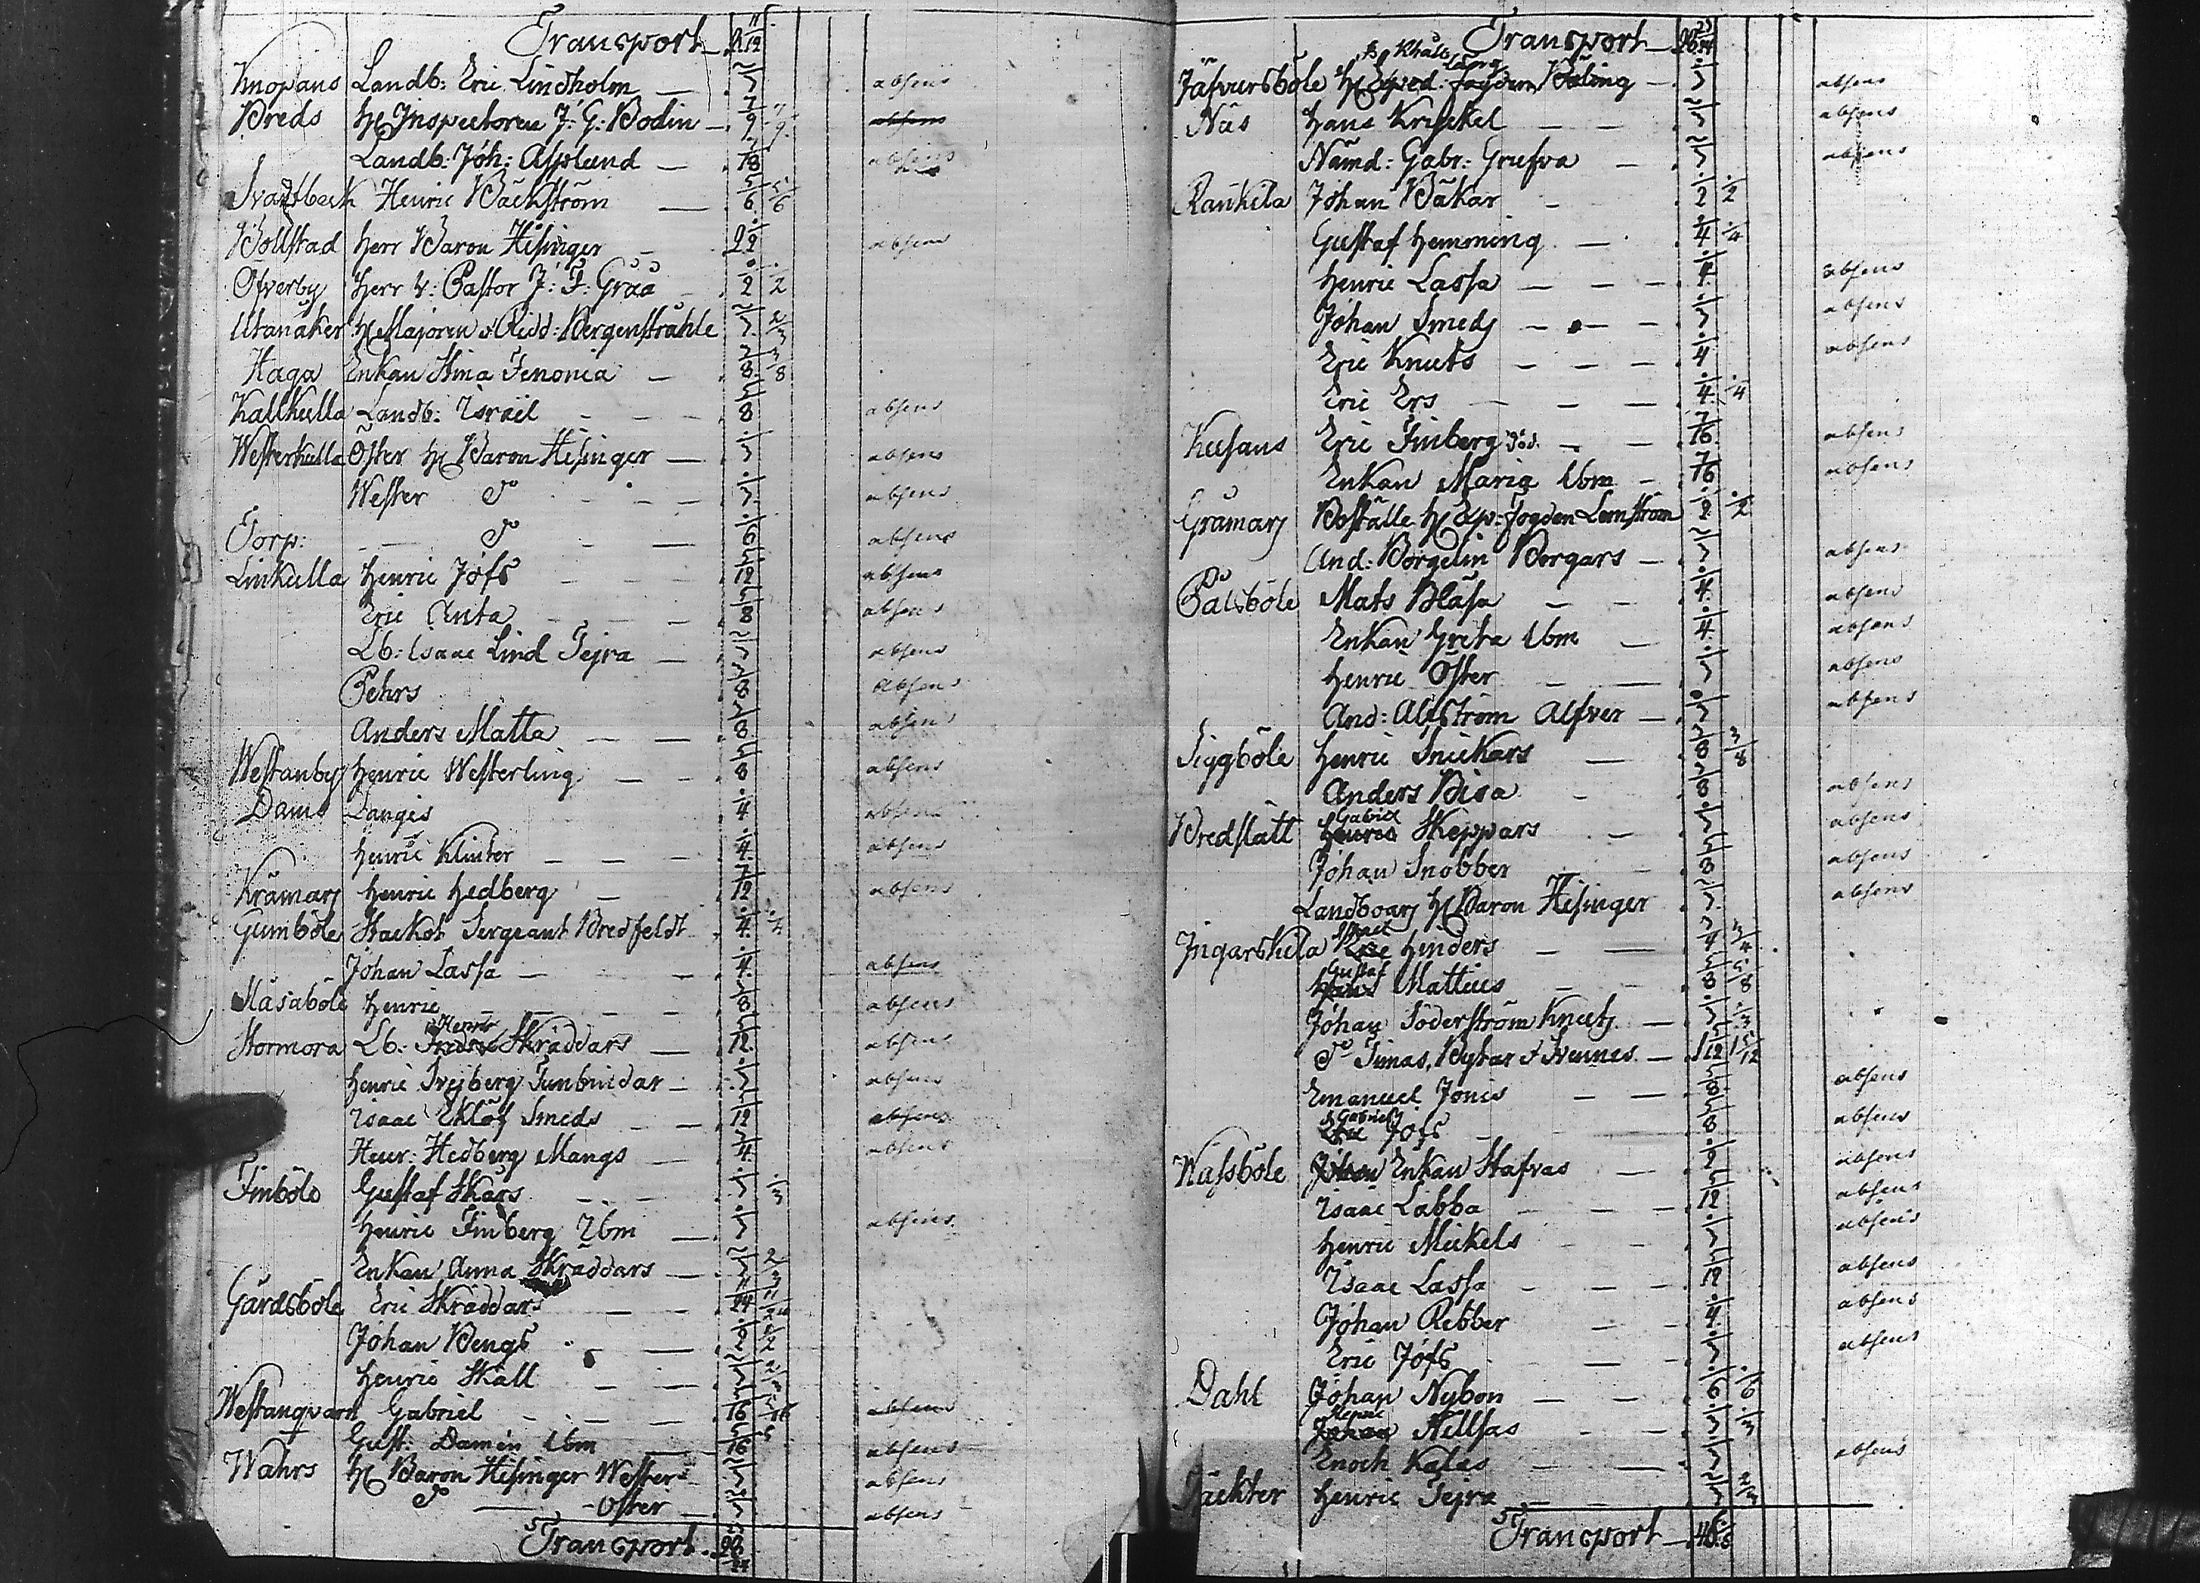 Transport 9 11/12
Knopans Landb: Eric Lindholm — 2/3 absens
Breds H. Inspectoren J: G: Bodin — 7/9 7/9 absens
Landb: Joh: Asplund — 7/18 absens
Svartbeck Henric Bäckström — 5/6 5/6
Böllstad Herr Baron Hisinger — 2 1/2 absens
Öfverby Herr V: Pastor J: F: Gråå 1/2 1/2
Utanåker H. Majoren o Ridd: Bergenstråhle 2/3 2/3
Haga Enkan Stina Fenonia — 3/8 3/8
Kallkulla Landb: Israel 5/8 absens
Westerkulla Öster H. Baron Hisinger — 1/3 absens
Wester D:o 1/3 absens
Torp: D:o 1/6 absens
Linkulla Henric Jofs 5/12 absens
Eric Anta 5/8 absens
Lb: Isaac Lind Tejra — 2/3 absens
Pehrs 3/8 absens
Anders Matta 3/8 absens
Westanby Henric Westerling 5/8 absens
Dams Langis 1/4 absens
Henric Klinter 1/4 absens
Krämars Henric Hedberg 7/12 absens
Gumböle Stackot Sergeant Bredfeldt 1/4 1/4
Johan Lassa — 1/4 absens
Måsaböle Henric 5/8 absens
Stormora Lb: Henric Skräddars — 5/12 absens
Henric Svejberg Tunbindar — 1/3 absens
Isaac Eklöf Smeds 5/12 absens
Henr: Hedberg Mangs — 3/4 absens
Finböle Gustaf Skärs 1/3 1/3
Henric Finberg Ibm — 1/3 absens
Enkan Anna Skräddars — 2/3 2/3
Gårdsböle Eric Skräddars 11/24 11/24
Johan Bengs 1/2 1/2
Henric Skall 2/3 2/3
Westanqvarn Gabriel 5/16 5/16 absens
Gust: Damén Ibm 5/16 absens
Wahrs H. Baron Hisinger Wester 2/3 absens
D:o — Öster — 2/3 absens
Transport
Transport
Jäfvursböle H. Exped: Fogden Båling — 1/3 absens
Näs Hans Krickel 2/3 absens
Nämd: Gabr: Grefva — 2/3 absens
Rankila Johan Båkar 1/2 1/2
Gustaf Hemming 1/4 1/4
Henric Lassa 1/4 absens
Johan Smeds 1/3 absens
Eric Knuts 1/4 absens
Eric Ers 1/4 1/4
Kusans Eric Finberg död. 7/16 absens
Enkan Maria Ibm — 7/16 absens
Gramars Boställe H. Exp: Fogden Lemström 1/2 1/2
And: Borgelin Borgars — 2/3 absens
Pålsböle Mats Blåsa 1/4 absens
Enkan Greta Ibm 1/4 absens
Henric Öster 1/3 absens
And: Alström Alfver — absens
Siggböle Henric Snickars 3/8 3/8
Anders Bisa 3/8 absens
Bredslätt Gabriel Skeppars 1/3 absens
Johan Snobber 5/8 absens
Landboars H. Baron Hisinger 2/3 absens
Ingarskila Hinders 3/4 3/4
Gustaf Mattus 5/8 5/8
Johan Söderström Knuts — 1/3 1/3
D:o Simas, Bystar o Svennes — 1 5/12 1 5/12
Emanuel Jonis 5/8 absens
Gabriel Jofs 5/8 absens
Wassböle Enkan Stafvas 1/2 absens
Isaac Labba 5/12 absens
Henric Mickels 1/3 absens
Isaac Lassa 5/12 absens
Johan Rebber 1/4 absens
Eric Jofs 1/3 absens
Dahl Johan Nybon 1/6 1/6
Henric Nellsas 1/3 1/3
Enoch Kalas 1/3 absens
Täckter Henric Tejra 2/3 2/3
Transport